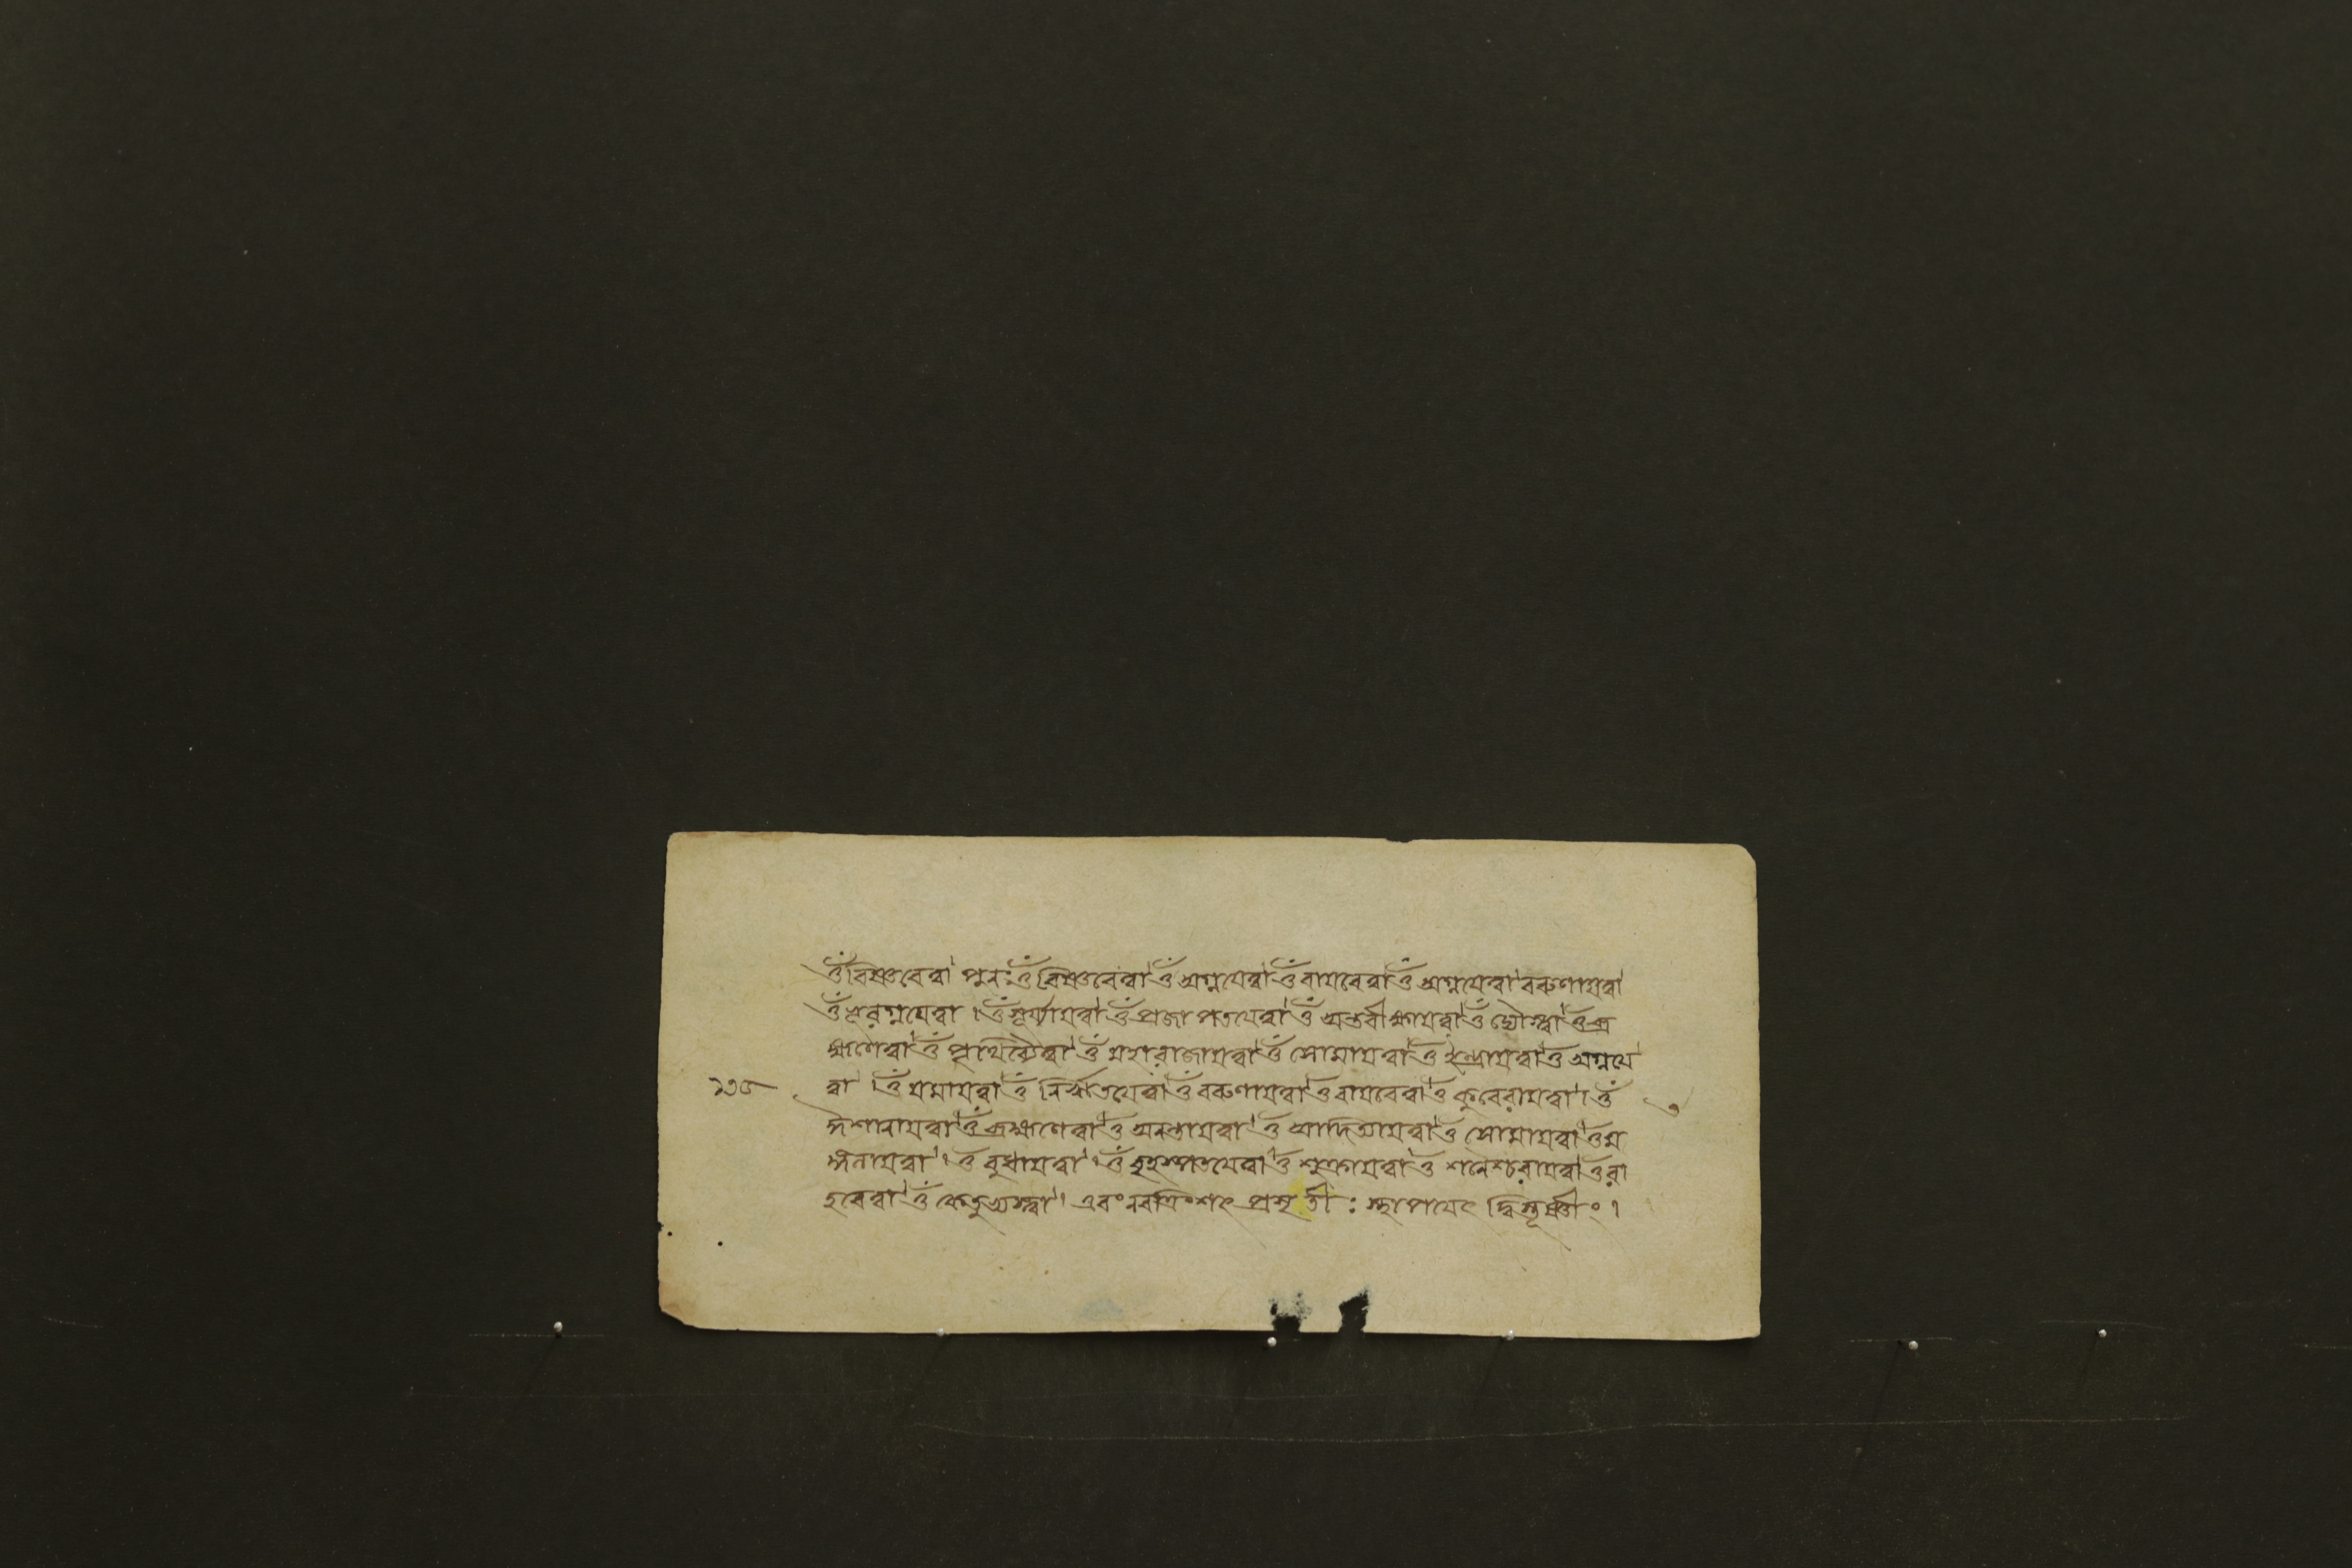 ওঁ বিষ্ণবেত্বা পুনঃ ওঁ বিষ্ণবেত্বা ওঁ অগ্নয়েত্বা ওঁ বায়বেত্বা ওঁ অগ্নয়েত্বা বরুণায়ত্বা
ওঁ অগ্নয়েত্বা । ওঁ সূর্য্যায়ত্বা ওঁ প্রজাপতয়েত্বা ওঁ অন্তরীক্ষায়ত্বা ওঁ দ্যৌস্ত্বা ওঁ ব্র
হ্মণেত্বা ওঁ পৃথিব্যৈত্বা ওঁ মহারাজায়ত্বা ওঁ সোমায়ত্বা ওঁ ইন্দ্রায়ত্বা ওঁ অগ্নয়ে
ত্বা । ওঁ যমায়ত্বা ওঁ নির্ঋতয়েত্বা ওঁ বরুণায়ত্বা ওঁ বায়বেত্বা ওঁ কুবেরায়ত্বা । ওঁ
ঈশানায়ত্বা ওঁ ব্রহ্মণেত্বা ওঁ অনন্তায়ত্বা ওঁ আদিত্যায়ত্বা ওঁ সোমায়ত্বা ওঁ ম
ঙ্গলায়ত্বা । ওঁ বুধায়ত্বা । ওঁ বৃহস্পতয়েত্বা ওঁ শুক্রায়ত্বা ওঁ শনৈশ্চরায়ত্বা ওঁ রা
হবেত্বা ওঁ কেতুভ্যস্ত্বা । এবং নবত্রিংশৎ প্রসৃতীঃ স্থাপয়েৎ দ্বিস্তূষ্ণীং ।